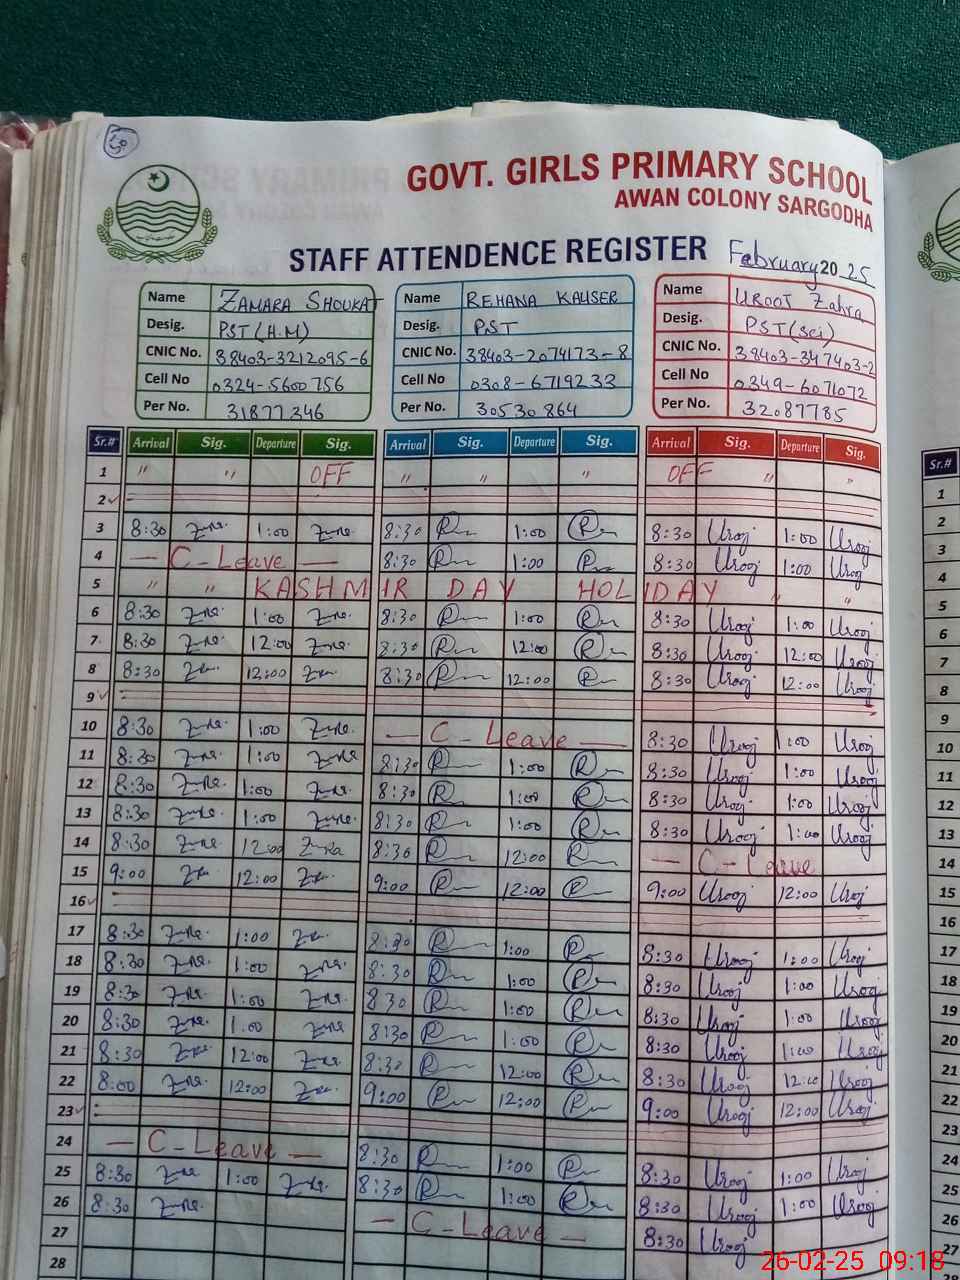 GOVT. GIRLS PRIMARY SCHOOL
AWAN COLONY SARGODHA
STAFF ATTENDENCE REGISTER February 2025
Name ZAMARA SHOUKAT Name REHANA KAUSER Name UROOJ Zahra
Desig. PST (H.M) Desig. PST Desig. PST (Sci)
CNIC No. 38403-3212095-6 CNIC No. 38403-2074173-8 CNIC No. 38403-347403-2
Cell No 0324-5600756 Cell No 0308-6719233 Cell No 0349-6071072
Per No. 31877346 Per No. 30530864 Per No. 32087785
Sr.# Arrival Sig. Departure Sig. Arrival Sig. Departure Sig. Arrival Sig. Departure Sig. Sr.#
1 " " OFF " " " OFF " " 1
2 2
3 8:30 1:00 8:30 1:00 8:30 Urooj 1:00 Urooj 3
4 — C-Leave — 8:30 1:00 8:30 Urooj 1:00 Urooj 4
5 " " KASHMIR DAY HOLIDAY " " 5
6 8:30 1:00 8:30 1:00 8:30 Urooj 1:00 Urooj 6
7 8:30 12:00 8:30 12:00 8:30 Urooj 12:00 Urooj 7
8 8:30 12:00 8:30 12:00 8:30 Urooj 12:00 Urooj 8
9 9
10 8:30 1:00 — C-Leave — 8:30 Urooj 1:00 Urooj 10
11 8:30 1:00 8:30 1:00 8:30 Urooj 1:00 Urooj 11
12 8:30 1:00 8:30 1:00 8:30 Urooj 1:00 Urooj 12
13 8:30 1:00 8:30 1:00 8:30 Urooj 1:00 Urooj 13
14 8:30 12:00 8:30 12:00 — C-Leave 14
15 9:00 12:00 9:00 12:00 9:00 Urooj 12:00 Urooj 15
16 16
17 8:30 1:00 8:30 1:00 8:30 Urooj 1:00 Urooj 17
18 8:30 1:00 8:30 1:00 8:30 Urooj 1:00 Urooj 18
19 8:30 1:00 8:30 1:00 8:30 Urooj 1:00 Urooj 19
20 8:30 1:00 8:30 1:00 8:30 Urooj 1:00 Urooj 20
21 8:30 12:00 8:30 12:00 8:30 Urooj 12:00 Urooj 21
22 8:00 12:00 9:00 12:00 9:00 Urooj 12:00 Urooj 22
23 23
24 — C-Leave — 8:30 1:00 8:30 Urooj 1:00 Urooj 24
25 8:30 1:00 8:30 1:00 8:30 Urooj 1:00 Urooj 25
26 8:30 — C-Leave — 8:30 Urooj 26
27 27
28
26-02-25 09:18